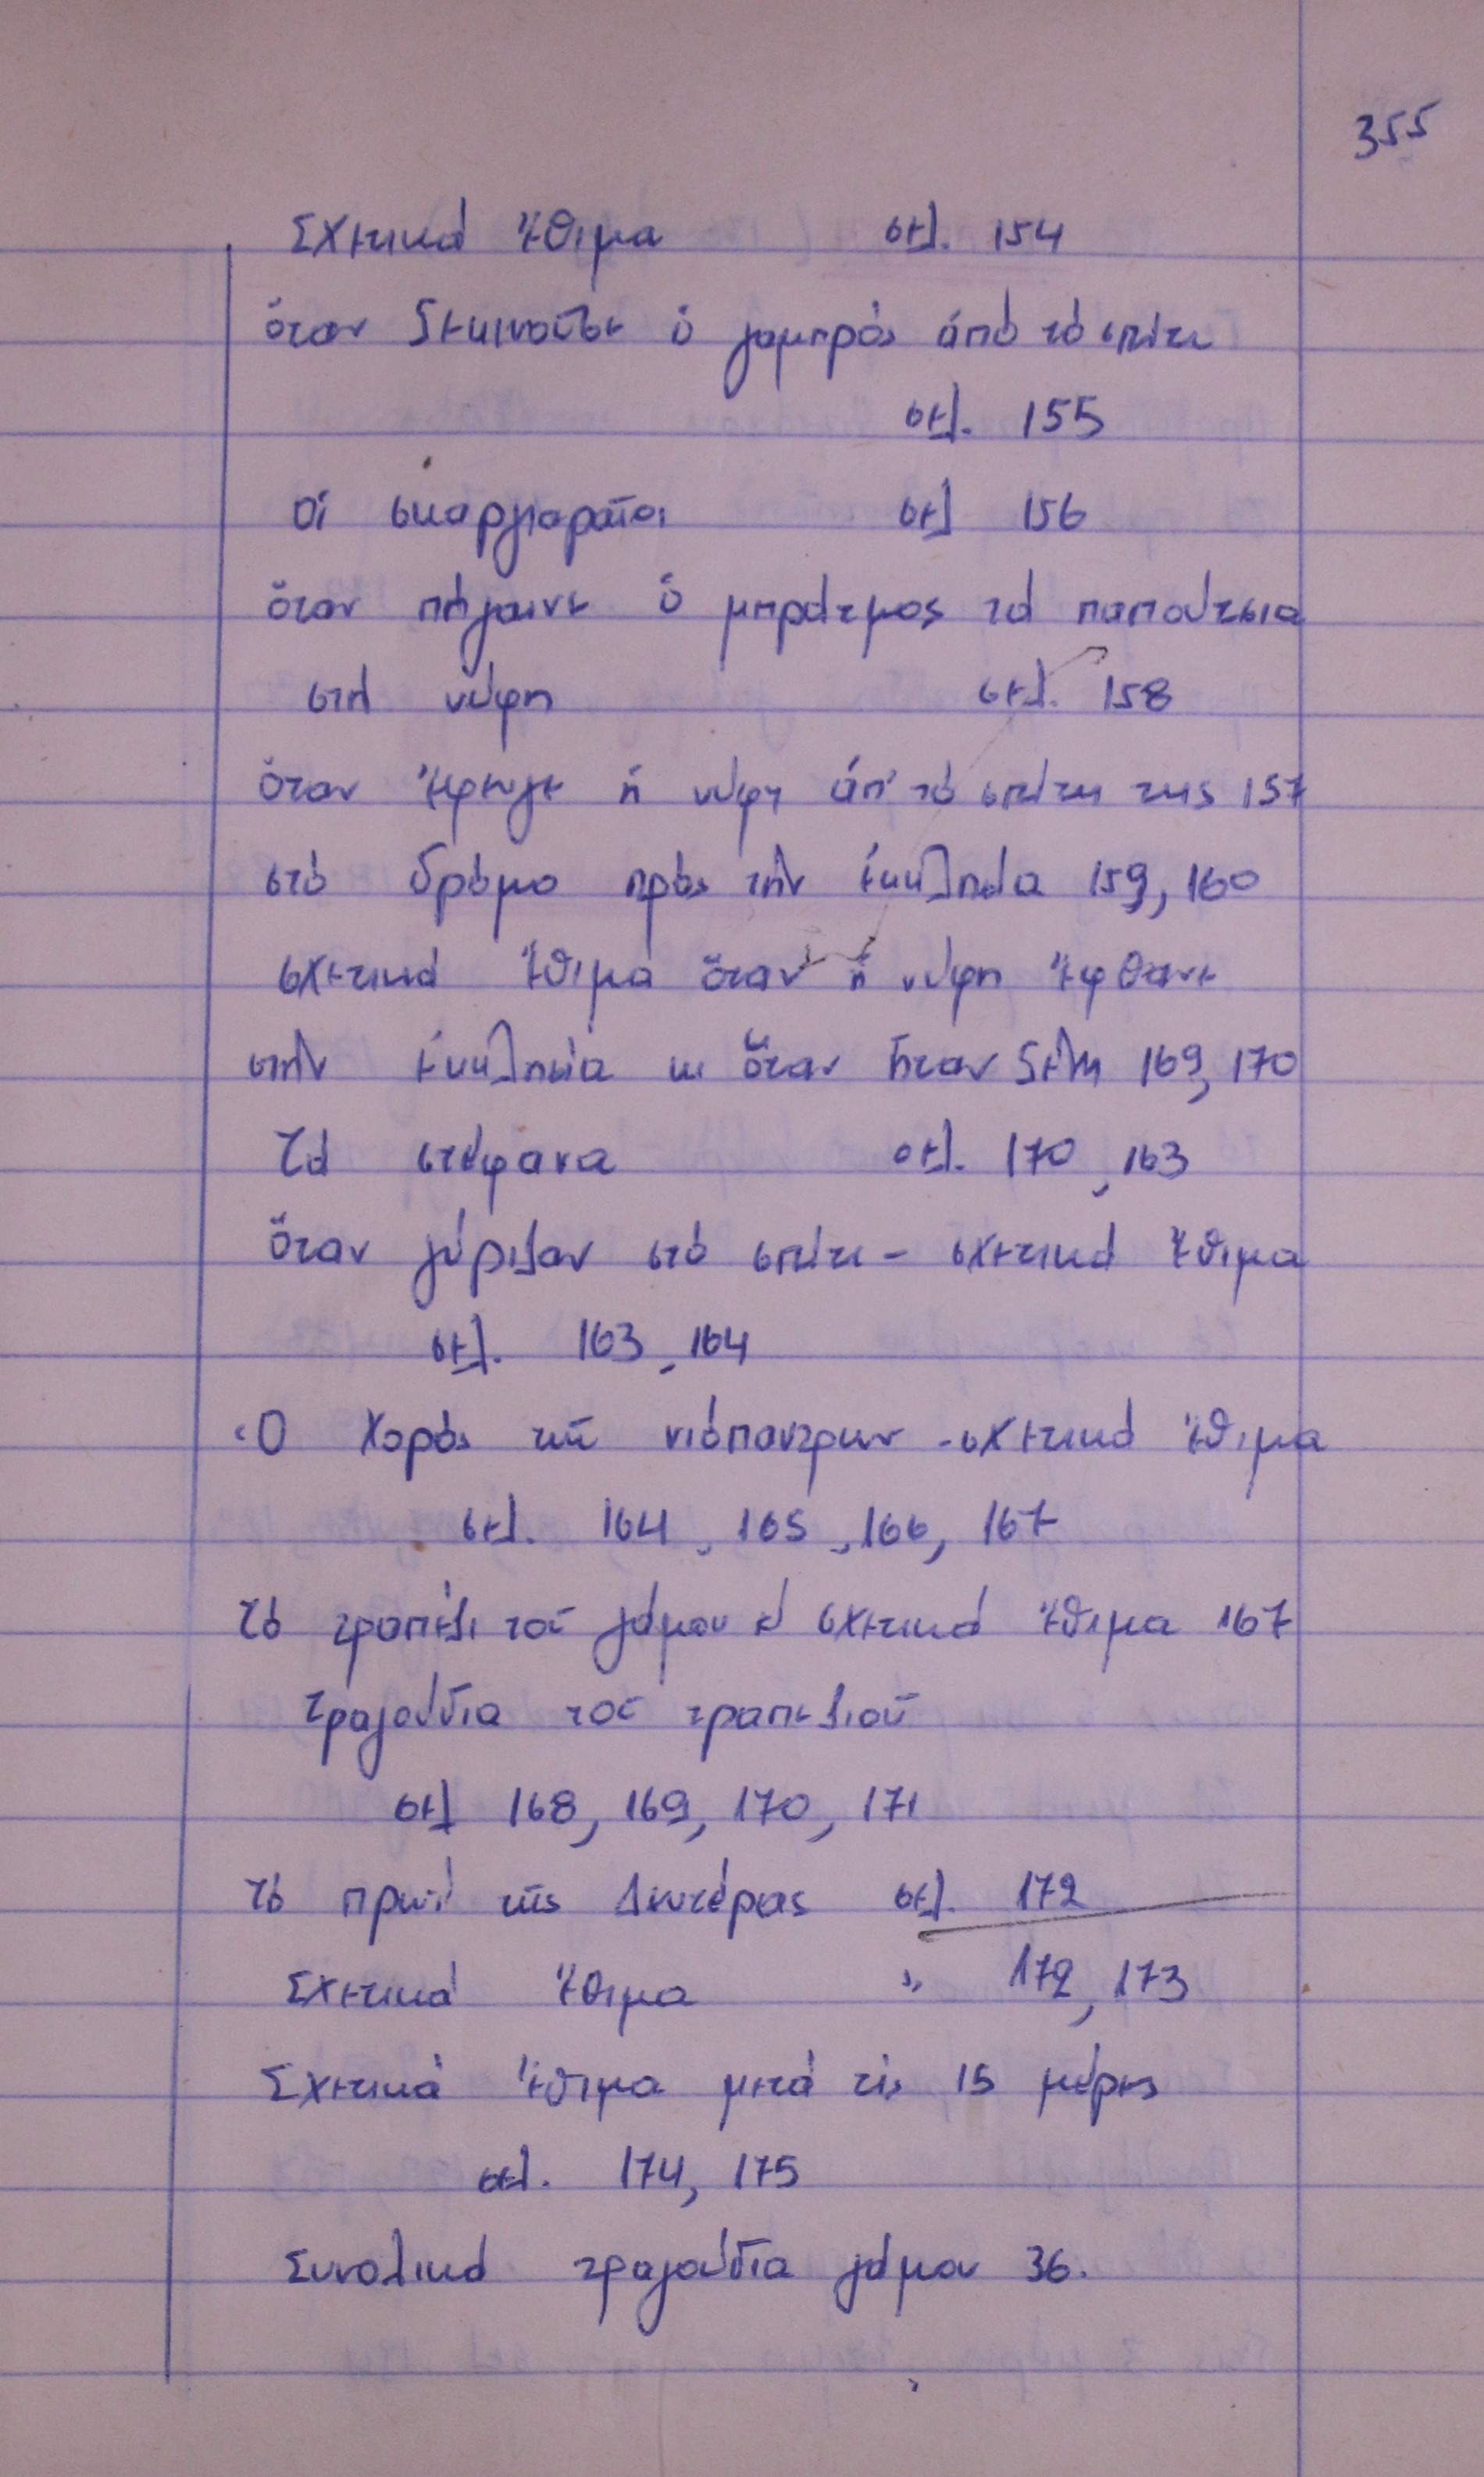 355
Σχετικά ἔθιμα σελ. 154
ὅταν ξεκινοῦσε ὁ γαμπρός ἀπό τό σπίτι
σελ. 155
Οἱ σκαργιαραῖοι σελ 156
ὅταν πήγαινε ὁ μπράτιμος τά παπούτσια
στή νύφη σελ. 158
ὅταν ἔφευγε ἡ νύφη ἀπ' τό σπίτι της 157
στό δρόμο πρός τήν ἐκκλησία 159, 160
σχετικά ἔθιμα ὅταν ἡ νύφη ἔφθανε
στήν ἐκκλησία κι ὅταν ἦταν ξένη 169, 170
Τά στέφανα σελ. 170, 163
Ὅταν γύριζαν στό σπίτι - σχετικά ἔθιμα
σελ. 163, 164
Ὁ Χορός τῶν νιόπαντρων - σχετικά ἔθιμα
σελ. 164, 165, 166, 167
Τό τραπέζι τοῦ γάμου κ σχετικά ἔθιμα 167
τραγούδια τοῦ τραπεζιοῦ
σελ 168, 169, 170, 171
Τό πρωί τῆς Δευτέρας σελ. 172
Σχετικά ἔθιμα " 172, 173
Σχετικά ἔθιμα μετά τίς 15 μέρες
σελ. 174, 175
Συνολικά τραγούδια γάμου 36.